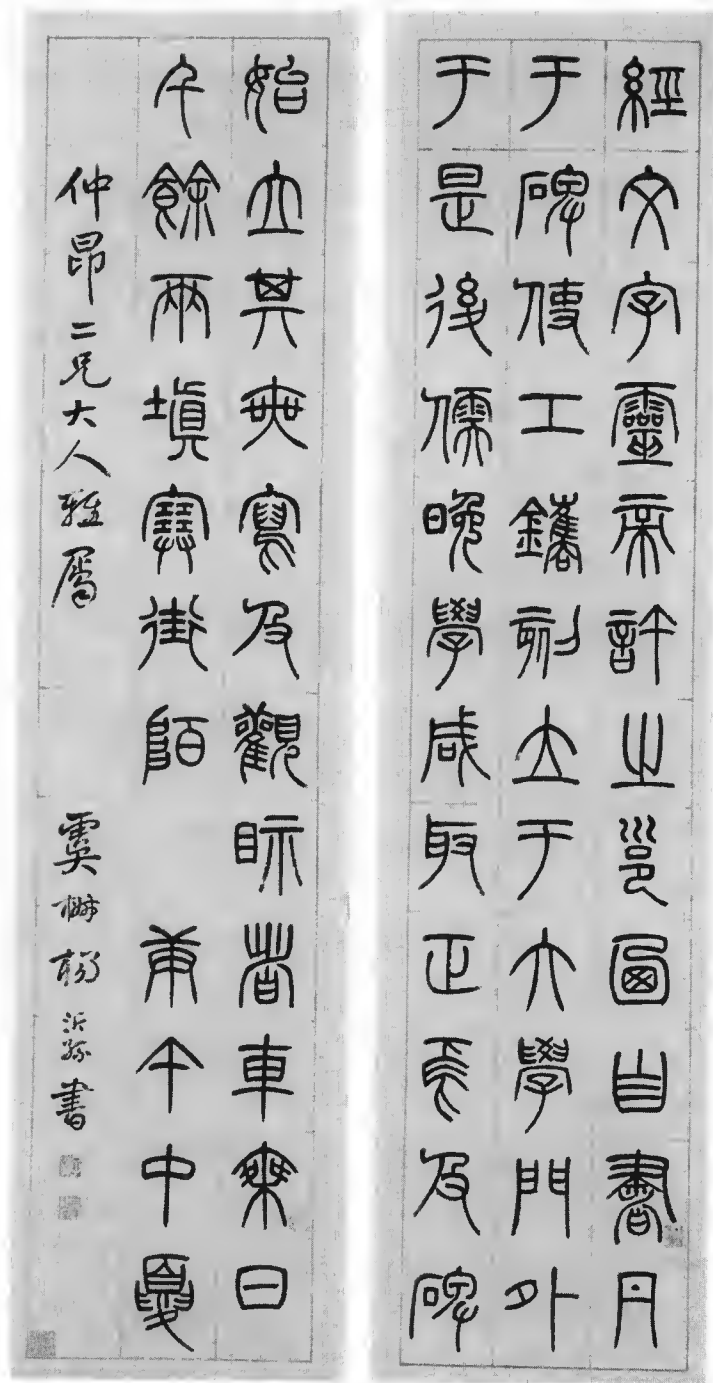 經文字靈帝許之邕卥自書丹
于碑使工鐫刻立于大學門外
于是後儒晚學咸取正焉及碑
始立其寫及觀眎者車乘日
千餘兩填塞街陌 庚午中夏
仲昂二兄大人雅屬 虞楊沂孫書